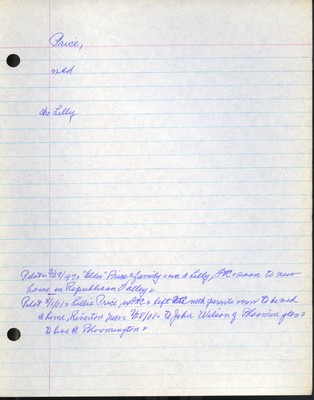 Price,
md
ch: Lilly
Pilot = 3/29/97 = "Elder" Price & family = we & Lilly, PC = soon to new
home in Republican Valley =
Pilot 8/1/01 = Lillie Price, PC = left with parents to be md
@ home, Riverton = 7/28/01 = to John Wilson of Bloomington =
to live @ Bloomington =